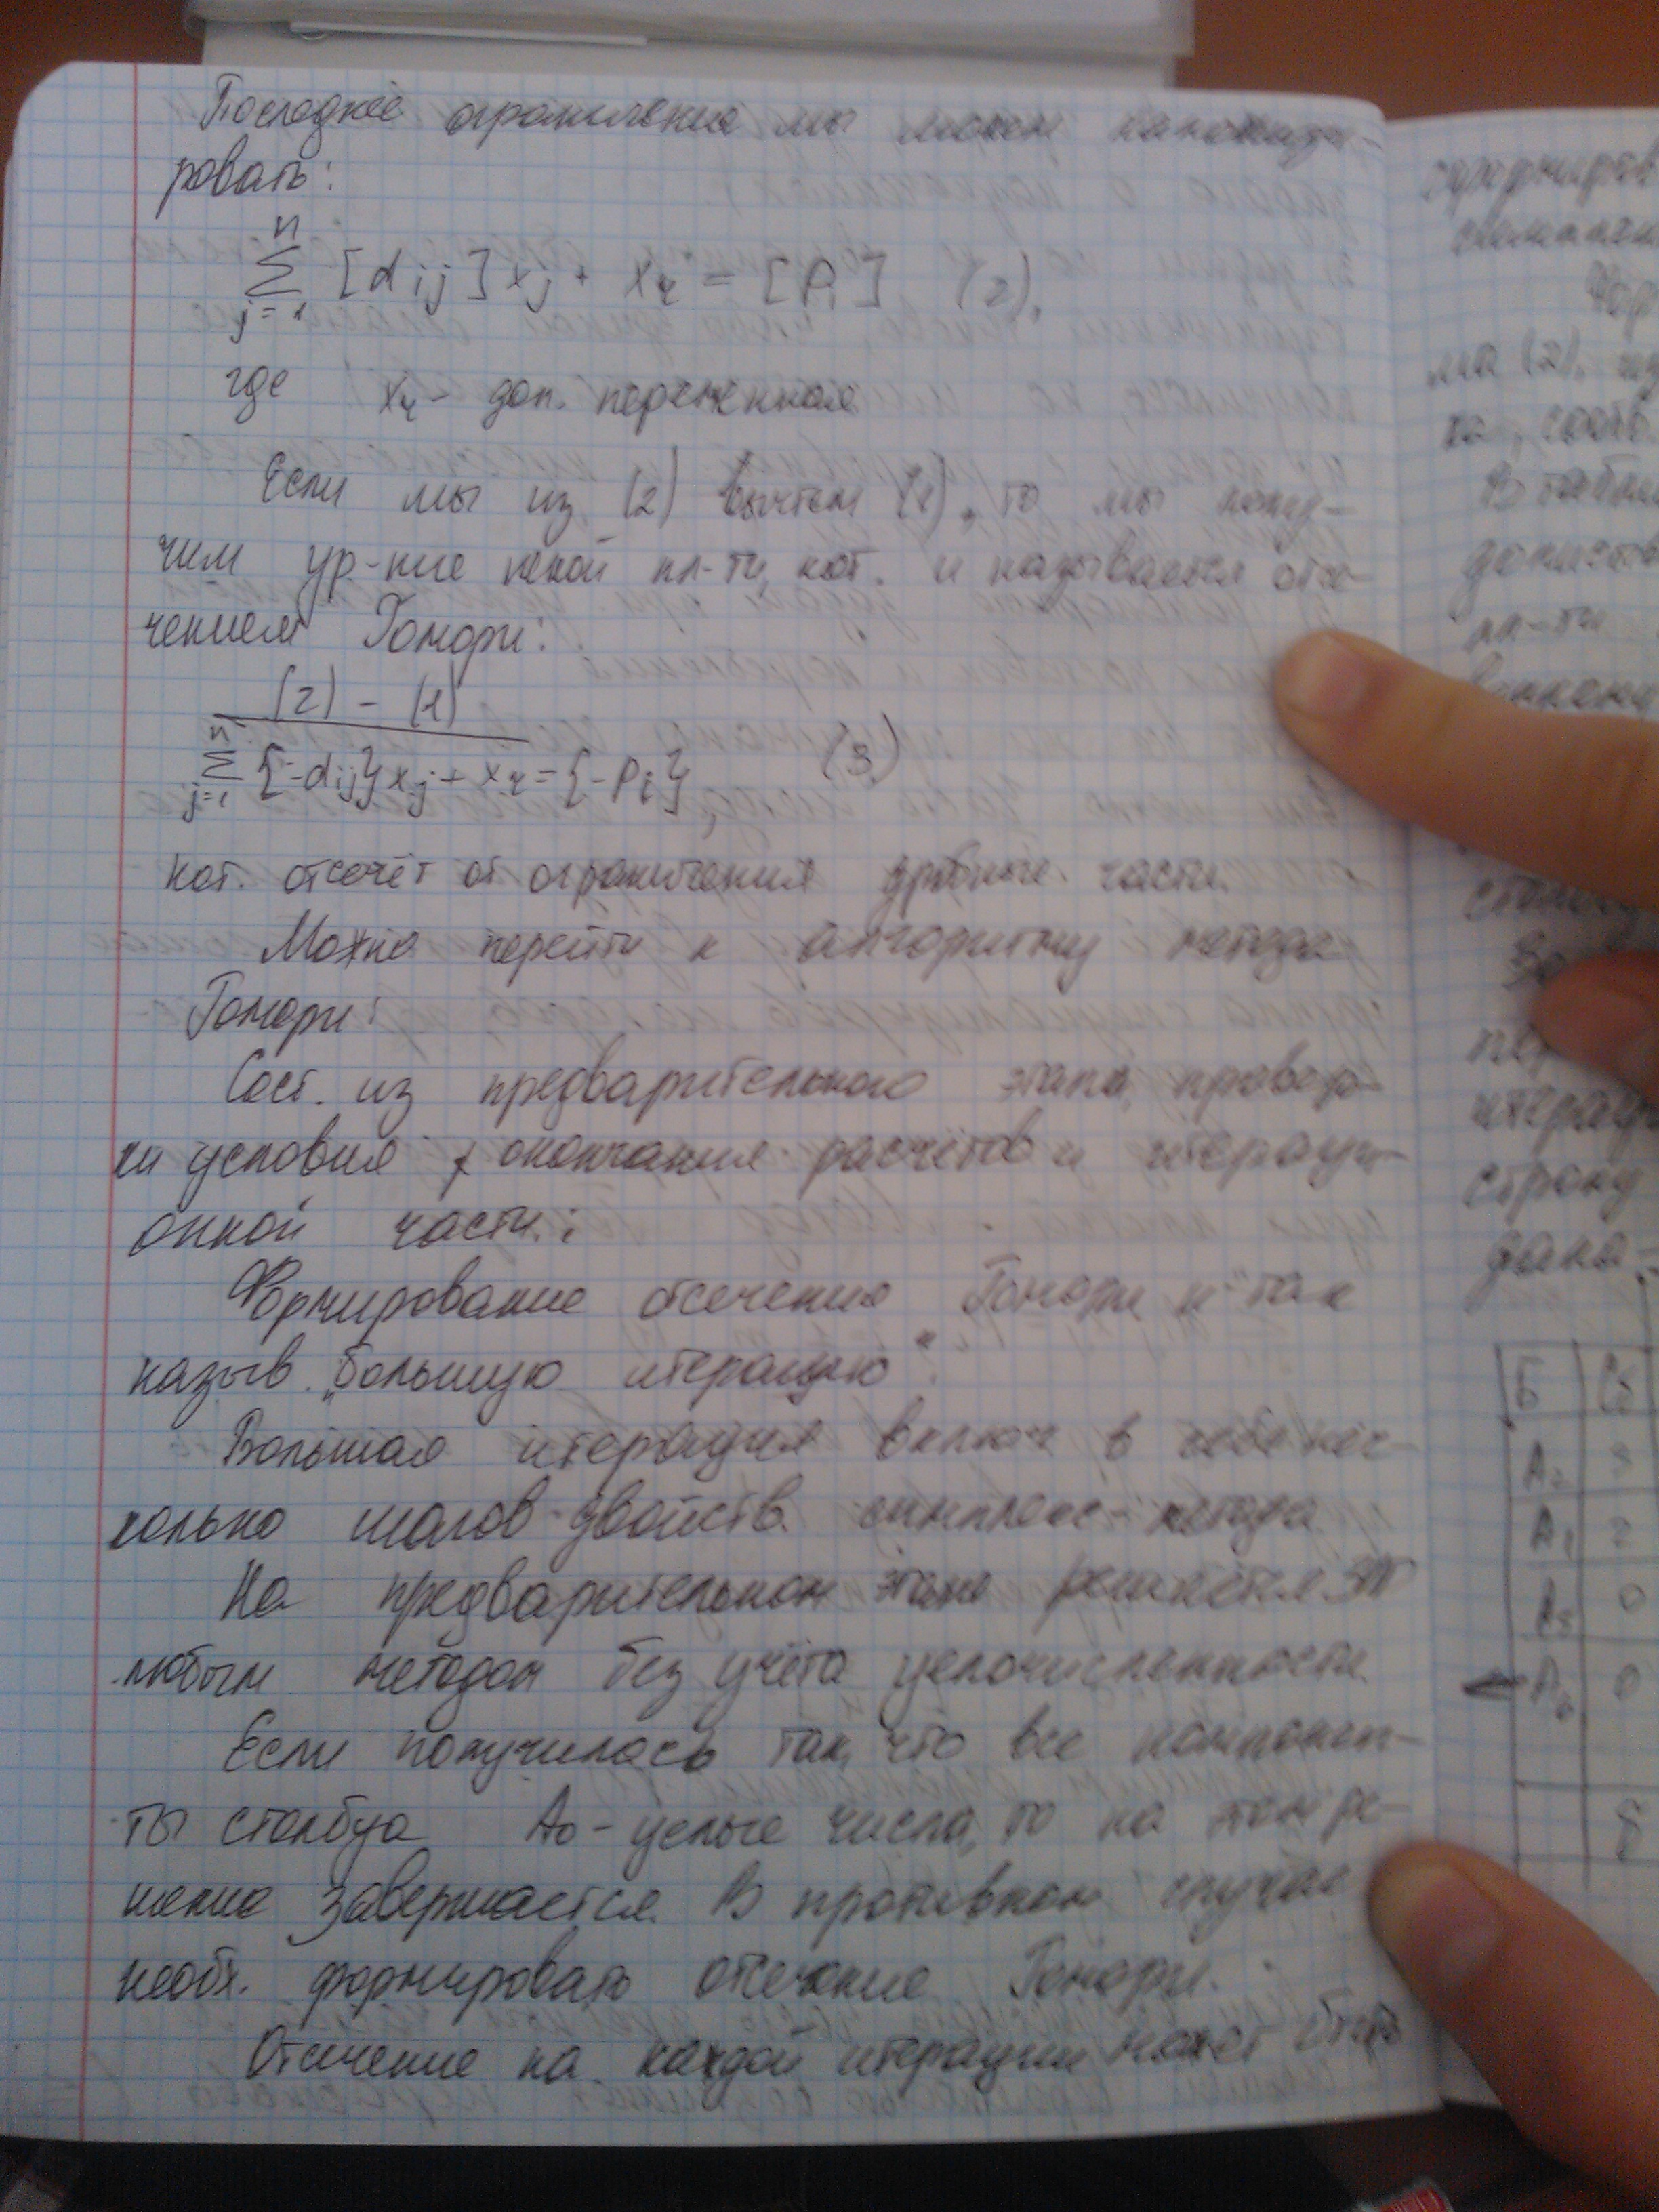 Последнее ограничение мы можем канонизи-
ровать:
n
∑ [dij]xj + x4 = [Pi] (2),
j=1
где x4 - доп. переменная
Если мы из (2) вычтем (1), то мы полу-
чим ур-ние некой пл-ти, кот. и называется отсе-
чением Гомори:
(2) - (1)
n
∑ {-dij}xj + x4 = {-Pi} (3)
j=1
кот. отсечёт от ограничения дробные части.
Можно перейти к алгоритму метода
Гомори:
Сост. из предварительного этапа, провер-
ки условия окончания расчётов и итераци-
онной части:
Формирование отсечения Гомори и "так
назыв. „большую итерацию“.
Большая итерация включ в себя нес-
колько шагов двойств. симплекс-метода
На предварительном этапе решается ЗЛП
любым методом без учёта целочисленности.
Если получилось так, что все компонен-
ты столбца A0 - целые числа, то на этом ре-
шение завершается. В противном случае
необх. формировать отсечение Гомори.
Отсечение на каждой итерации может быть
ма (2),
В табли
пл-ти
строку
Б
A2
A1 2
A5 0
A6 0